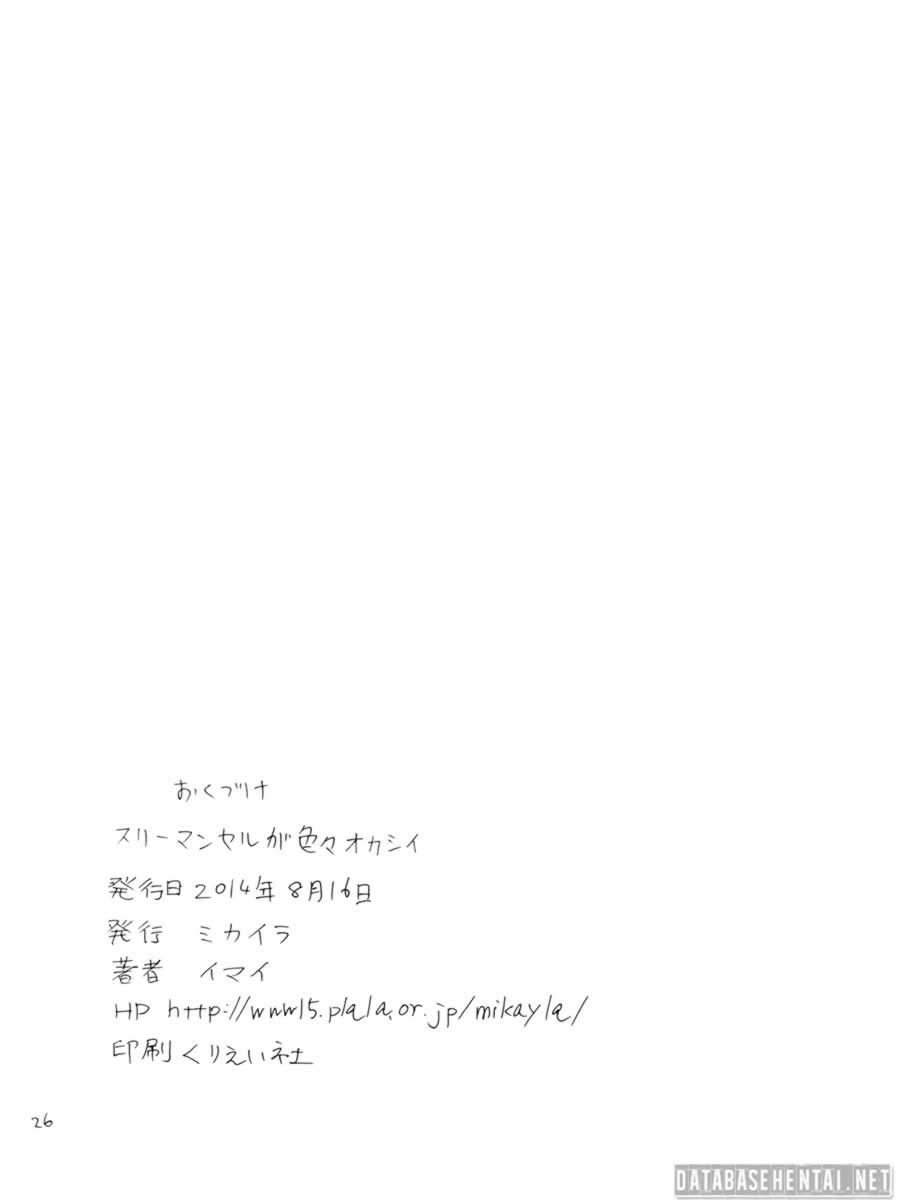 おくづけ
スリーマンセルが色々オカシイ
発行日 2014年 8月16日
発行 ミカイラ
著者 イマイ
HP http://www15.plala.or.jp/mikayla/
印刷 くりえい社
26
DATABASEHENTAI.NET